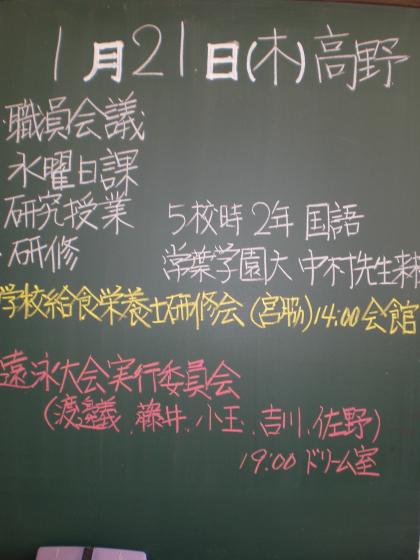 1月21日(木)高野
・職員会議
水曜日課
研究授業 5校時 2年 国語
・研修 常葉学園大 中村先生来
学校給食栄養士研修会 (宮)14:00会館
遠泳大会実行委員会
(渡、藤井、小玉、吉川、佐野)
19:00 ドリーム室